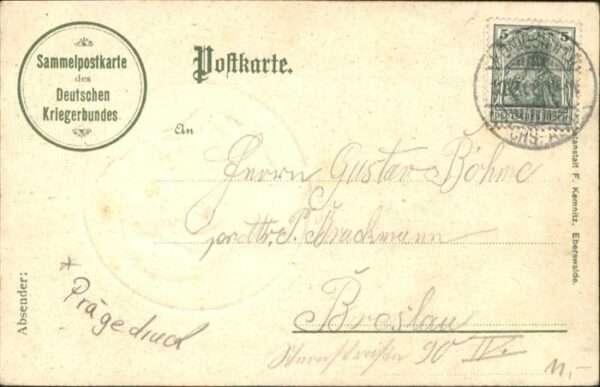 Sammelpostkarte
des
Deutschen
Kriegerbundes.
Postkarte.
5 5
An
Herrn Gustav Böhme
P. Bruckmann
Breslau
90 IV.
Absender:
* Prägedruck
anstalt F. Kemnitz, Eberswalde.
11,-